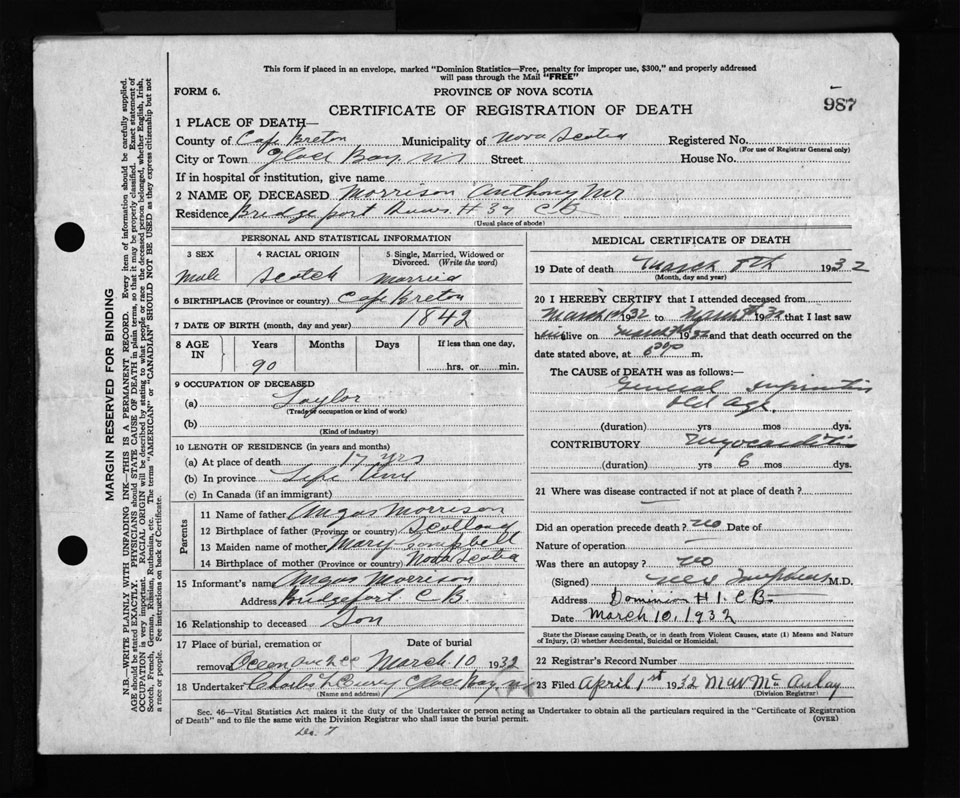 This form if placed in an envelope, marked "Dominion Statistics—Free, penalty for improper use, $300," and properly addressed
will pass through the Mail "FREE"
FORM 6.
PROVINCE OF NOVA SCOTIA
987
CERTIFICATE OF REGISTRATION OF DEATH
1 PLACE OF DEATH—
County of Cape Breton Municipality of Nova Scotia Registered No.
(For use of Registrar General only)
City or Town Glace Bay, NS Street House No.
If in hospital or institution, give name
2 NAME OF DECEASED Morrison Anthony Mr
Residence Bridgeport H 39 CB
(Usual place of abode)
PERSONAL AND STATISTICAL INFORMATION
3 SEX 4 RACIAL ORIGIN 5 Single, Married, Widowed or
Divorced. (Write the word)
Male Scotch Married
6 BIRTHPLACE (Province or country) Cape Breton
7 DATE OF BIRTH (month, day and year) 1842
8 AGE IN Years Months Days If less than one day,
90 hrs. or min.
9 OCCUPATION OF DECEASED
(a) Taylor
(Trade, occupation or kind of work)
(b)
(Kind of industry)
10 LENGTH OF RESIDENCE (in years and months)
(a) At place of death 17 yrs
(b) In province Life time
(c) In Canada (if an immigrant)
Parents
11 Name of father Angus Morrison
12 Birthplace of father (Province or country) Scotland
13 Maiden name of mother Mary Campbell
14 Birthplace of mother (Province or country) Nova Scotia
15 Informant's name Angus Morrison
Address Bridgeport C B.
16 Relationship to deceased Son
17 Place of burial, cremation or Date of burial
removal March 10 1932
18 Undertaker Charles L Curry Glace Bay, NS
(Name and address)
MEDICAL CERTIFICATE OF DEATH
19 Date of death March 8th 1932
(Month, day and year)
20 I HEREBY CERTIFY that I attended deceased from
March 1st 1932 to March 8th 1932 that I last saw
him alive on March 7th 1932 and that death occurred on the
date stated above, at m.
The CAUSE of DEATH was as follows:—
General
old age.
(duration) yrs mos dys.
CONTRIBUTORY Myocarditis
(duration) yrs 6 mos dys.
21 Where was disease contracted if not at place of death?
Did an operation precede death? no Date of
Nature of operation
Was there an autopsy? no
(Signed) M.D.
Address Dominion H 1. C B
Date March 10, 1932
State the Disease causing Death, or in death from Violent Causes, state (1) Means and Nature
of Injury, (2) whether Accidental, Suicidal or Homicidal.
22 Registrar's Record Number
23 Filed April 1st 1932 McAulay
(Division Registrar)
Sec. 46—Vital Statistics Act makes it the duty of the Undertaker or person acting as Undertaker to obtain all the particulars required in the "Certificate of Registration
of Death" and to file the same with the Division Registrar who shall issue the burial permit.
(OVER)
MARGIN RESERVED FOR BINDING
N.B.—WRITE PLAINLY WITH UNFADING INK—THIS IS A PERMANENT RECORD. Every item of information should be carefully supplied.
AGE should be stated EXACTLY. PHYSICIANS should STATE CAUSE OF DEATH in plain terms, so that it may be properly classified. Exact statement of
OCCUPATION is very important. RACIAL ORIGIN will be described by stating to what people or race the deceased person belonged, whether English, Irish,
Scotch, French, German, Russian, Ruthenian, etc. The terms "AMERICAN" or "CANADIAN" SHOULD NOT BE USED as they express citizenship but not
a race or people. See instructions on back of Certificate.